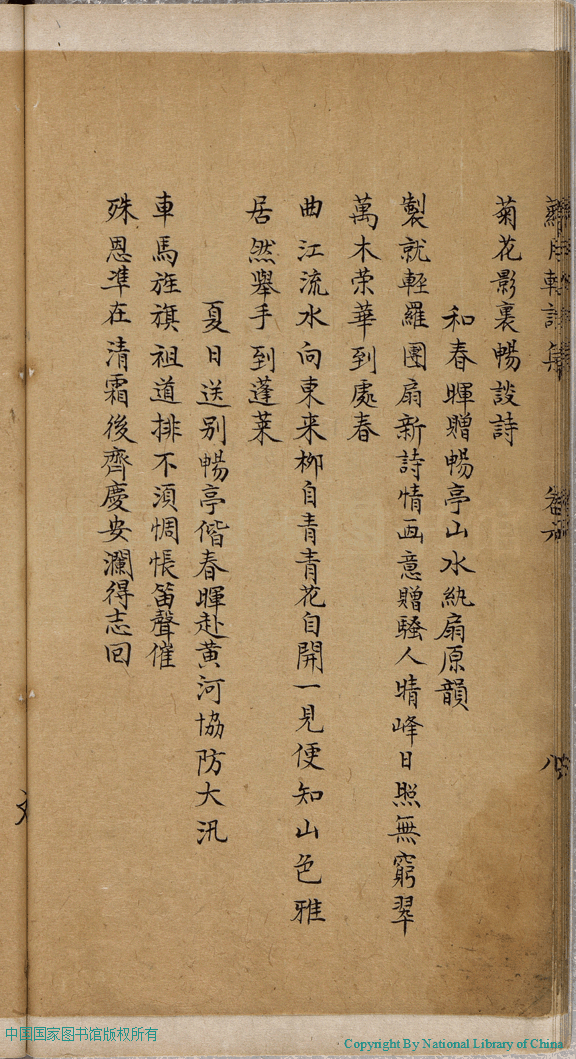 菊花影裏暢談詩
和春暉贈暢亭山水紈扇原韻
製就輕羅團扇新詩情画意贈騷人晴峰日照無窮翠
萬木荣華到處春
曲江流水向東来栁自青青花自開一見便知山色雅
居然舉手到蓬莱
夏日送别暢亭偕春暉赴黄河協防大汛
車馬旌旗祖道排不湏惆悵笛聲催
殊恩凖在清霜後齊慶安瀾得志回
中国国家图书馆版权所有
Copyright By National Library of China